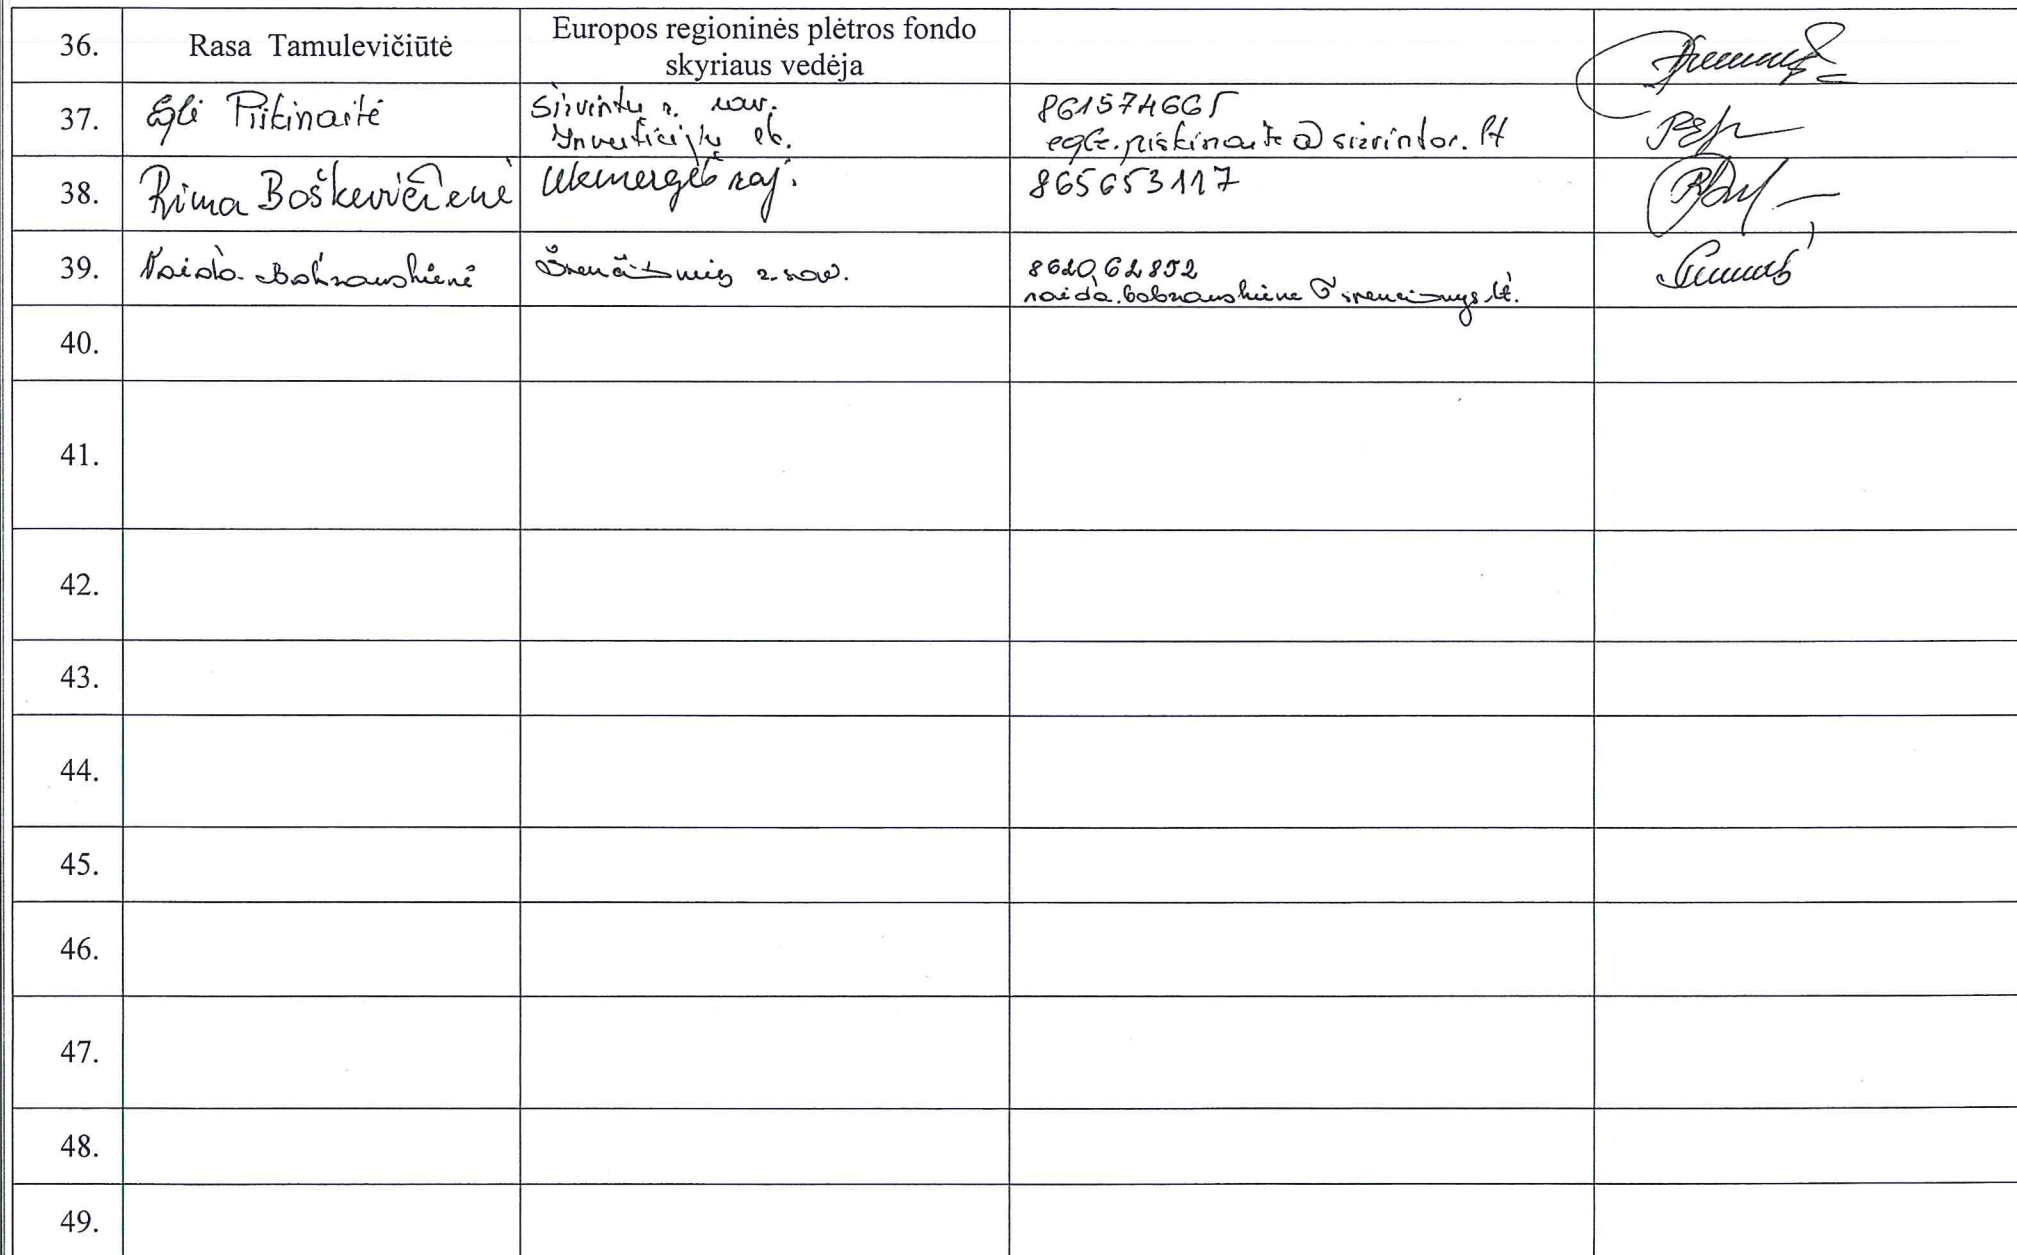 36.
Rasa Tamulevičiūtė
Europos regioninės plėtros fondo
skyriaus vedėja
37.
Eglė Piškinaitė
Širvintų r. sav.
Investicijų
861574665
egle.piskinaite@sirvintos.lt
38.
Rima Boškevičienė
Ukmergės raj.
865653117
39.
Vaida Bobrauskienė
Švenčionių r. sav.
862062852
vaida.bobrauskiene@svencionys.lt.
40.
41.
42.
43.
44.
45.
46.
47.
48.
49.